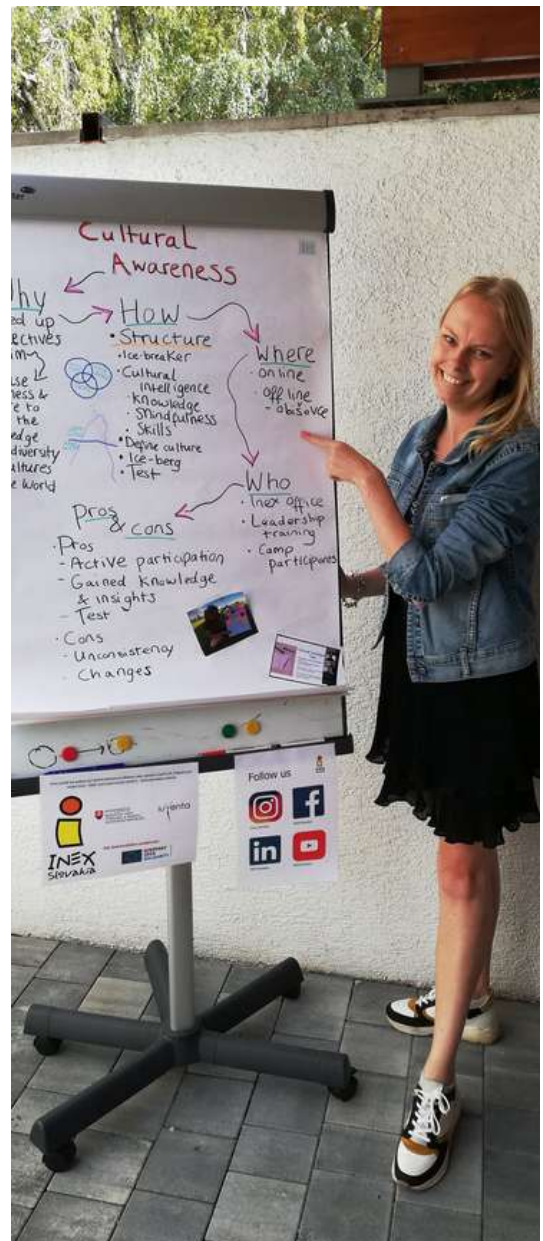 Cultural
Awareness
hy
ed up
ectives
m
se
ness &
e to
the
edge
diversity
ltures
e World
How
• Structure
• Ice-breaker
• Cultural
intelligence
• Knowledge
• Mindfulness
• Skills
• Define culture
• Ice-berg
• Test
Where
• online
• offline
Who
• Inex office
• Leadership
training
• Camp
participants
Pros
& cons
• Pros
- Active participation
- Gained Knowledge
& insights
- Test
• Cons
- Unconsistency
- Changes
INEX
Slovakia
Follow us
in